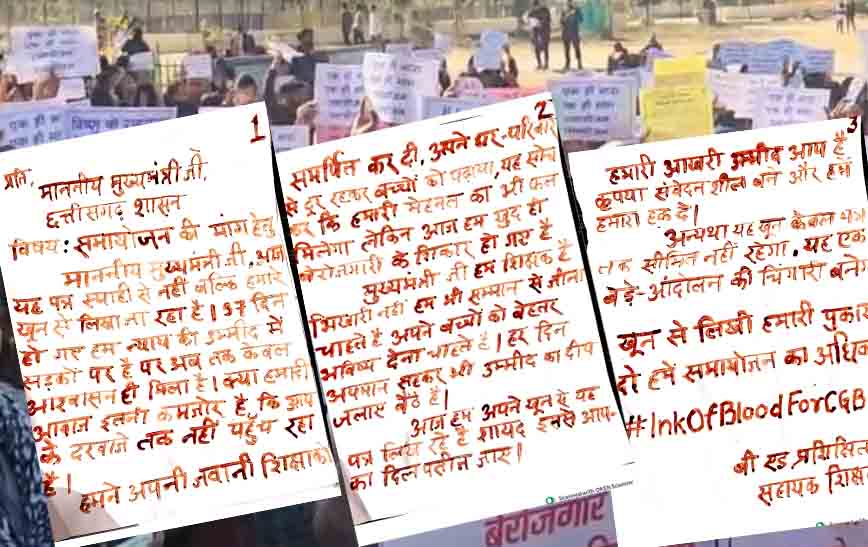 1
प्रति,
माननीय मुख्यमंत्री जी,
छत्तीसगढ़ शासन
विषय: समायोजन की मांग हेतु
माननीय मुख्यमंत्री जी, आज
यह पत्र स्याही से नहीं बल्कि हमारे
खून से लिखा जा रहा है। 37 दिन
हो गए हम न्याय की उम्मीद में
सड़कों पर है पर अब तक केवल
आश्वासन ही मिला है। क्या हमारी
आवाज इतनी कमजोर है, कि आप
के दरवाजे तक नहीं पहुँच रहा
है।
हमने अपनी जवानी शिक्षा को
2
समर्पित कर दी, अपने घर-परिवार
से दूर रहकर बच्चों को पढ़ाया, यह सोच
कर कि हमारी मेहनत का भी फल
मिलेगा लेकिन आज हम खुद ही
बेरोजगारी के शिकार हो गए है
मुख्यमंत्री जी हम शिक्षक है
भिखारी नहीं हम भी सम्मान से जीना
चाहते है अपने बच्चों को बेहतर
भविष्य देना चाहते है। हर दिन
अपमान सहकर भी उम्मीद का दीप
जलाए बैठे है।
आज हम अपने खून से यह
पत्र लिख रहे है शायद इनसे आप
का दिल पसीज जाए।
3
हमारी आखरी उम्मीद आप है
कृपया संवेदनशील बने और हमें
हमारा हक दें।
अन्यथा यह खून केवल
तक सीमित नहीं रहेगा, यह एक
बड़े-आंदोलन की चिंगारी बनेगा
खून से लिखी हमारी पुकार
दो हमें समायोजन का अधिक
#InkOfBloodForCGB
बी एड प्रशिक्षित
सहायक शिक्षक
Scanned with OKEN Scanner
बेरोजगार